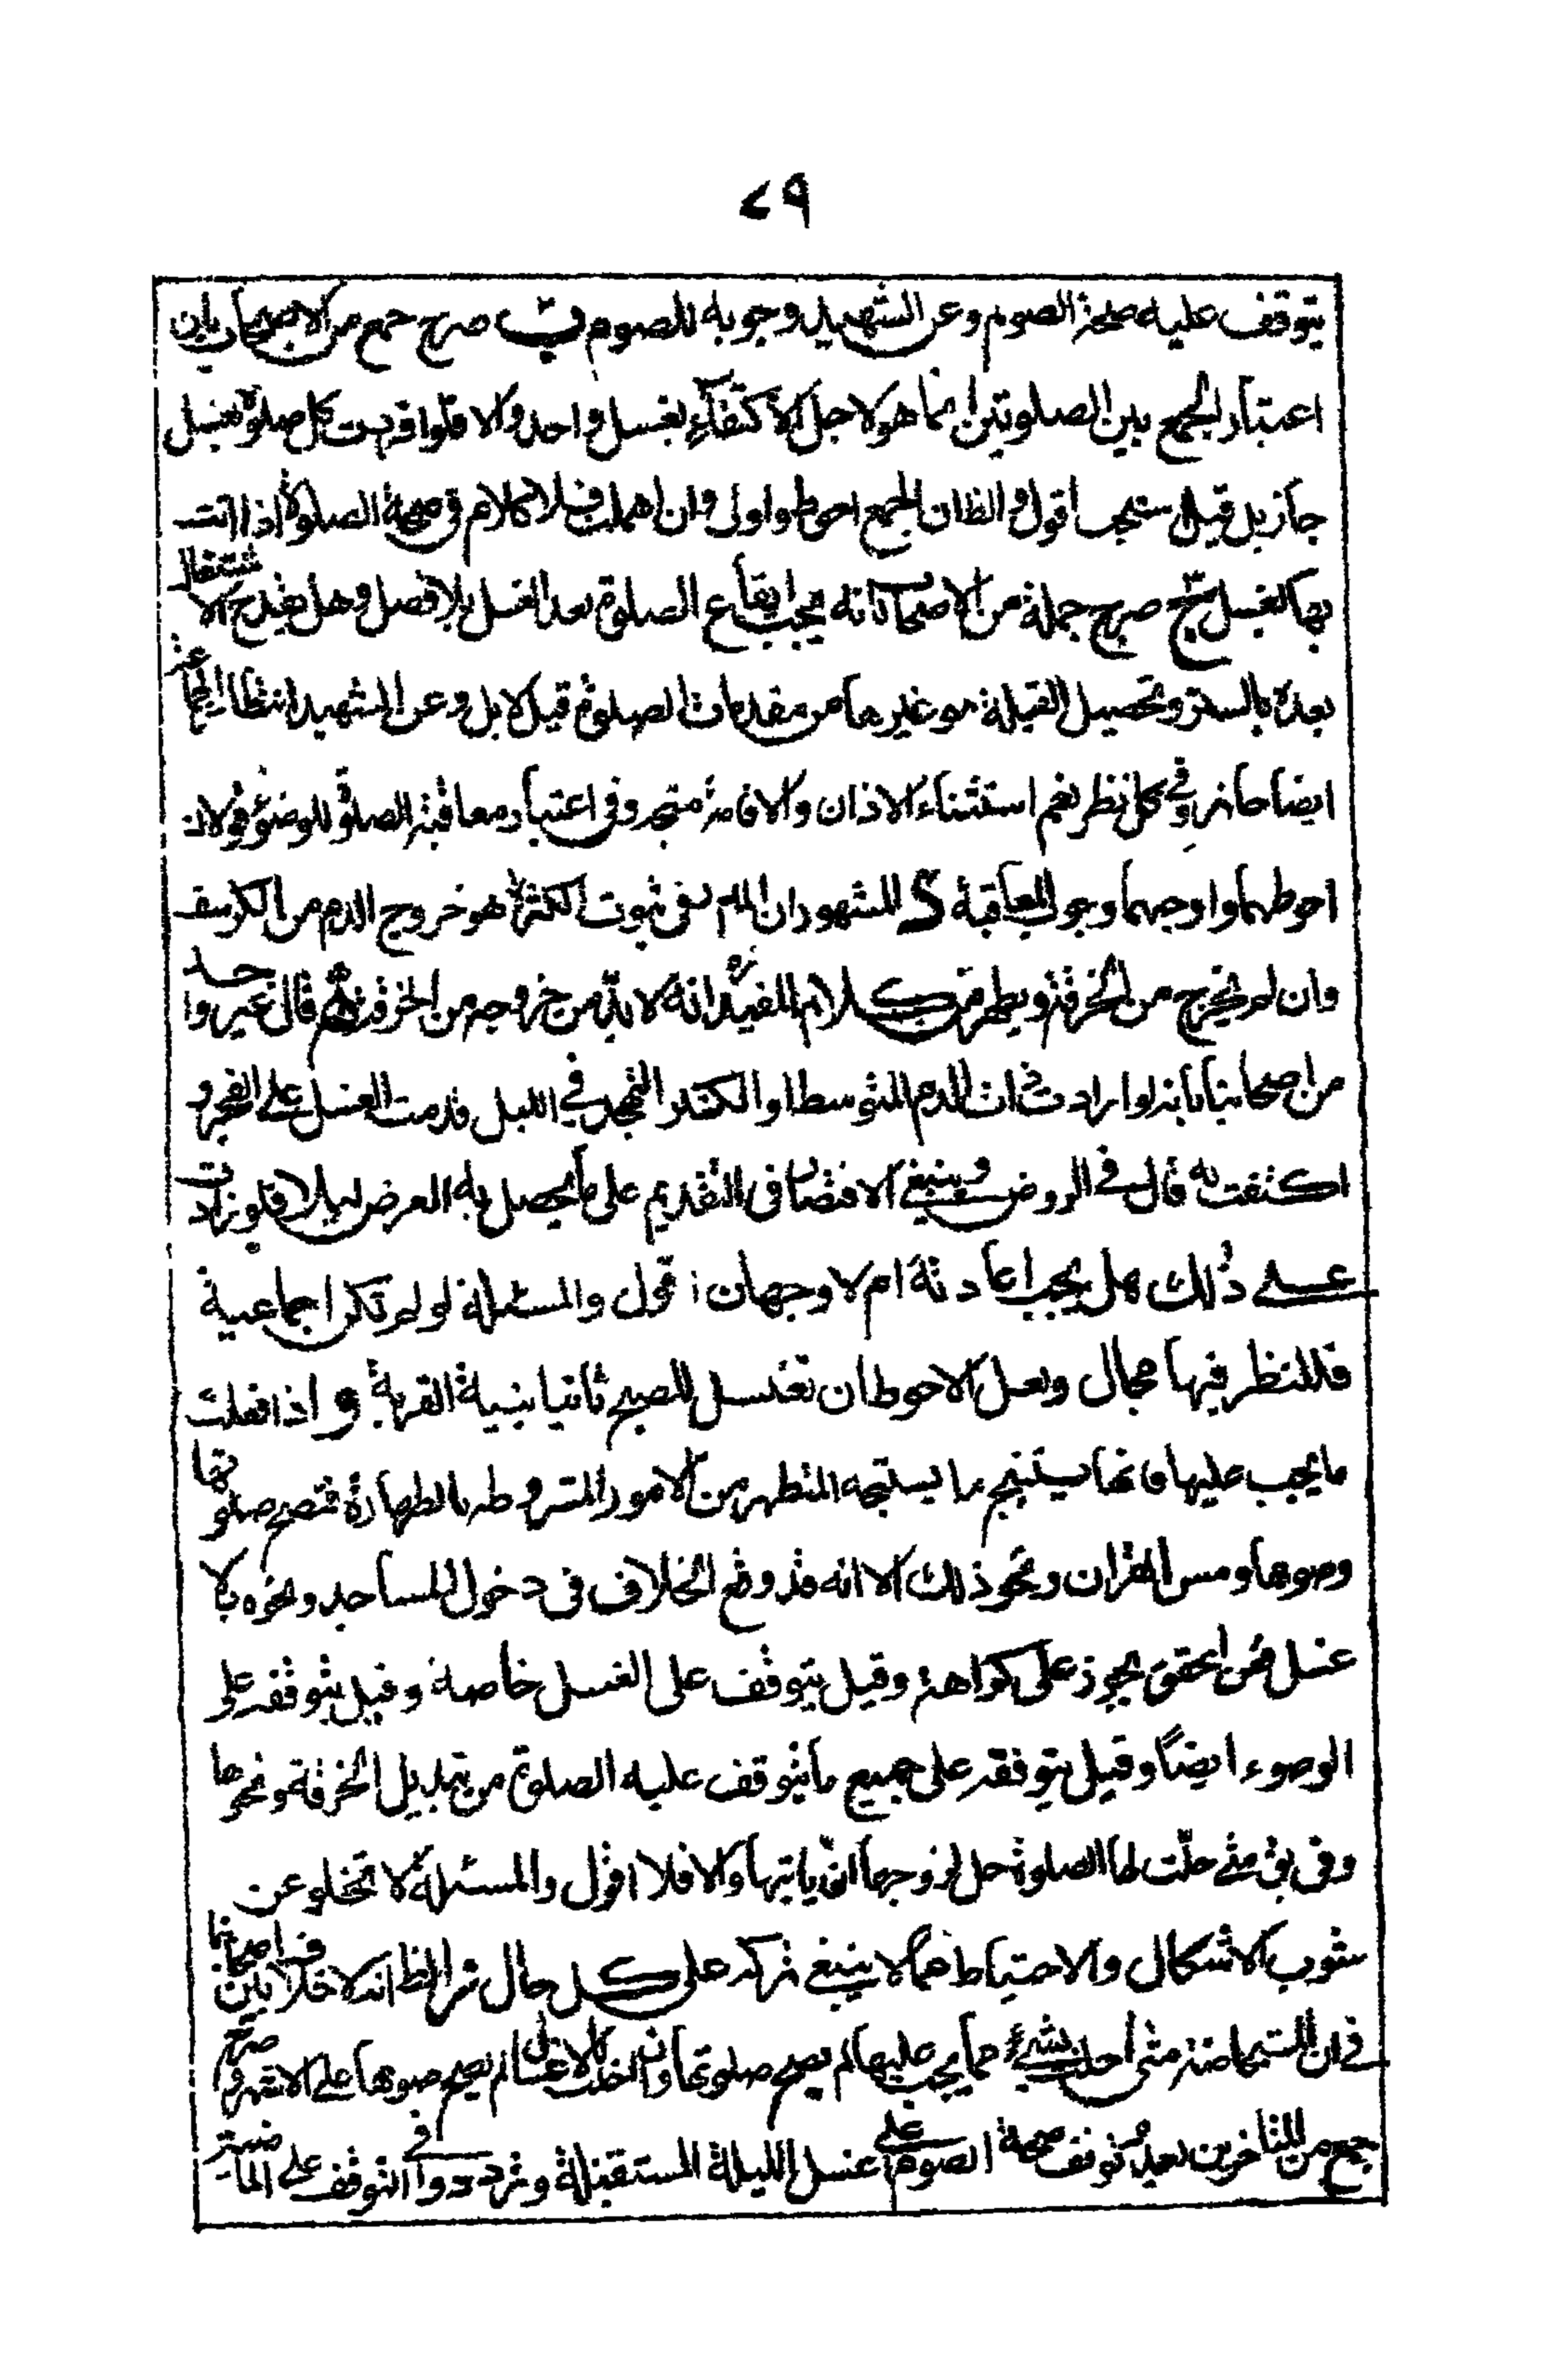 ٧٩
يتوقف عليه صحة الصوم وعن الشهيد وجوبه للصوم صرح جمع من الاصحاب بان
اعتبار الجمع بين الصلوتين انما هو لاجل الاكتفاء بغسل واحد والا فلو افردت كل صلوة بغسل
جاز بل قيل يستحب اقول والظان الجمع احوط واولى وان اهملت فلا كلام في صحة الصلوة اذا اتت
بها لغسل صرح جملة من الاصحاب انه يجب ايقاع الصلوة بعد الغسل بلا فصل وهل يقدح الاشتغال
بعده بالستر وتحصيل القبلة وغيرها من مقدمات الصلوة قيل لا بل وعن الشهيد انتظار الجماعة
ايضا جائز وفي كل نظر نعم استثناء الاذان والاقامة متجه وفي اعتبار معاقبة الصلوة للوضوء قولان
احوطهما واوجههما وجوب المعاقبة المشهور ان المعتبر في ثبوت الكثرة هو خروج الدم من الكرسف
وان لم يخرج من الخرقة ويظهر من كلام المفيد انه لا بد من خروجه من الخرقة قال غير واحد
من اصحابنا بانه لو ارادت ذات الدم المتوسط او الكثير التهجد في الليل قدمت الغسل على الفجر و
اكتفت به قال في الروض وينبغي الاقتصار في التقديم على ما يحصل به الغرض ليلا فلو زادت
على ذلك هل يجب اعادته ام لا وجهان اقول والمسئلة لو لم تكن اجماعية
فللنظر فيها مجال ولعل الاحوط ان تغتسل للصبح ثانيا بنية القربة و اذا فعلت
ما يجب عليها فانها يستبيح ما يستبيحه المتطهر من الامور المشروطه بالطهارة فتصح صلوتها
وصومها ومس القران ونحو ذلك الا انه قد وقع الخلاف في دخول المساجد ونحوه بلا
غسل فعن المحقق يجوز على كراهة وقيل يتوقف على الغسل خاصة وقيل بتوقفه على
الوضوء ايضا وقيل بتوقفه على جميع ما يتوقف عليه الصلوة من تبديل الخرقة ونحوها
وفي متى حلت لها الصلوة حل لزوجها ان ياتيها والا فلا اقول والمسئلة لا تخلو عن
شوب الاشكال والاحتياط مما لا ينبغي تركه على كل حال ثم الظ انه لا خلاف بين اصحابنا
في ان المستحاضة متى اخلت بشيء مما يجب عليها لم يصح صلوتها وان اخلت بالاغسال لم يصح صومها على الاشهر وصرح
جمع من المتاخرين بعدم توقف صحة الصوم على غسل الليلة المستقبلة وترددوا في التوقف على الماضية